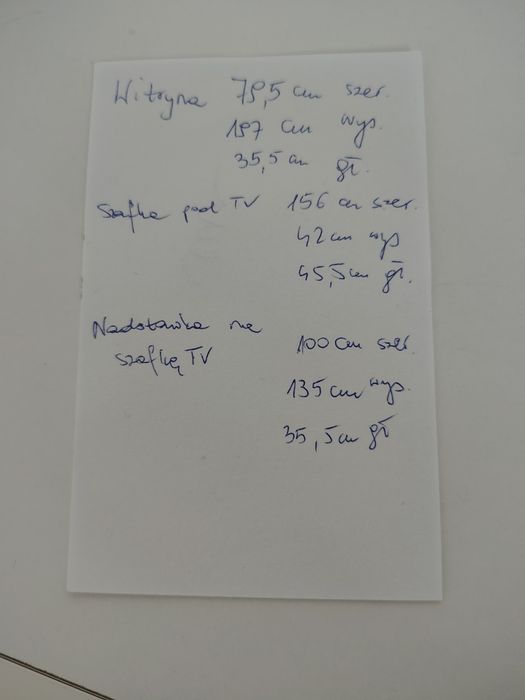 Witryna 79,5 cm szer.
197 cm wys.
35,5 cm gł.
Szafka pod TV 156 cm szer.
42 cm wys
45,5 cm gł.
Nadstawka na
szafkę TV 100 cm szer.
135 cm wys.
35,5 cm gł